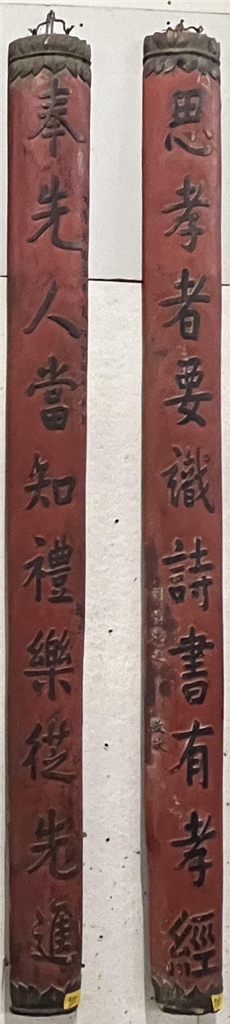 思孝者要識詩書有孝經
奉先人當知禮樂從先進